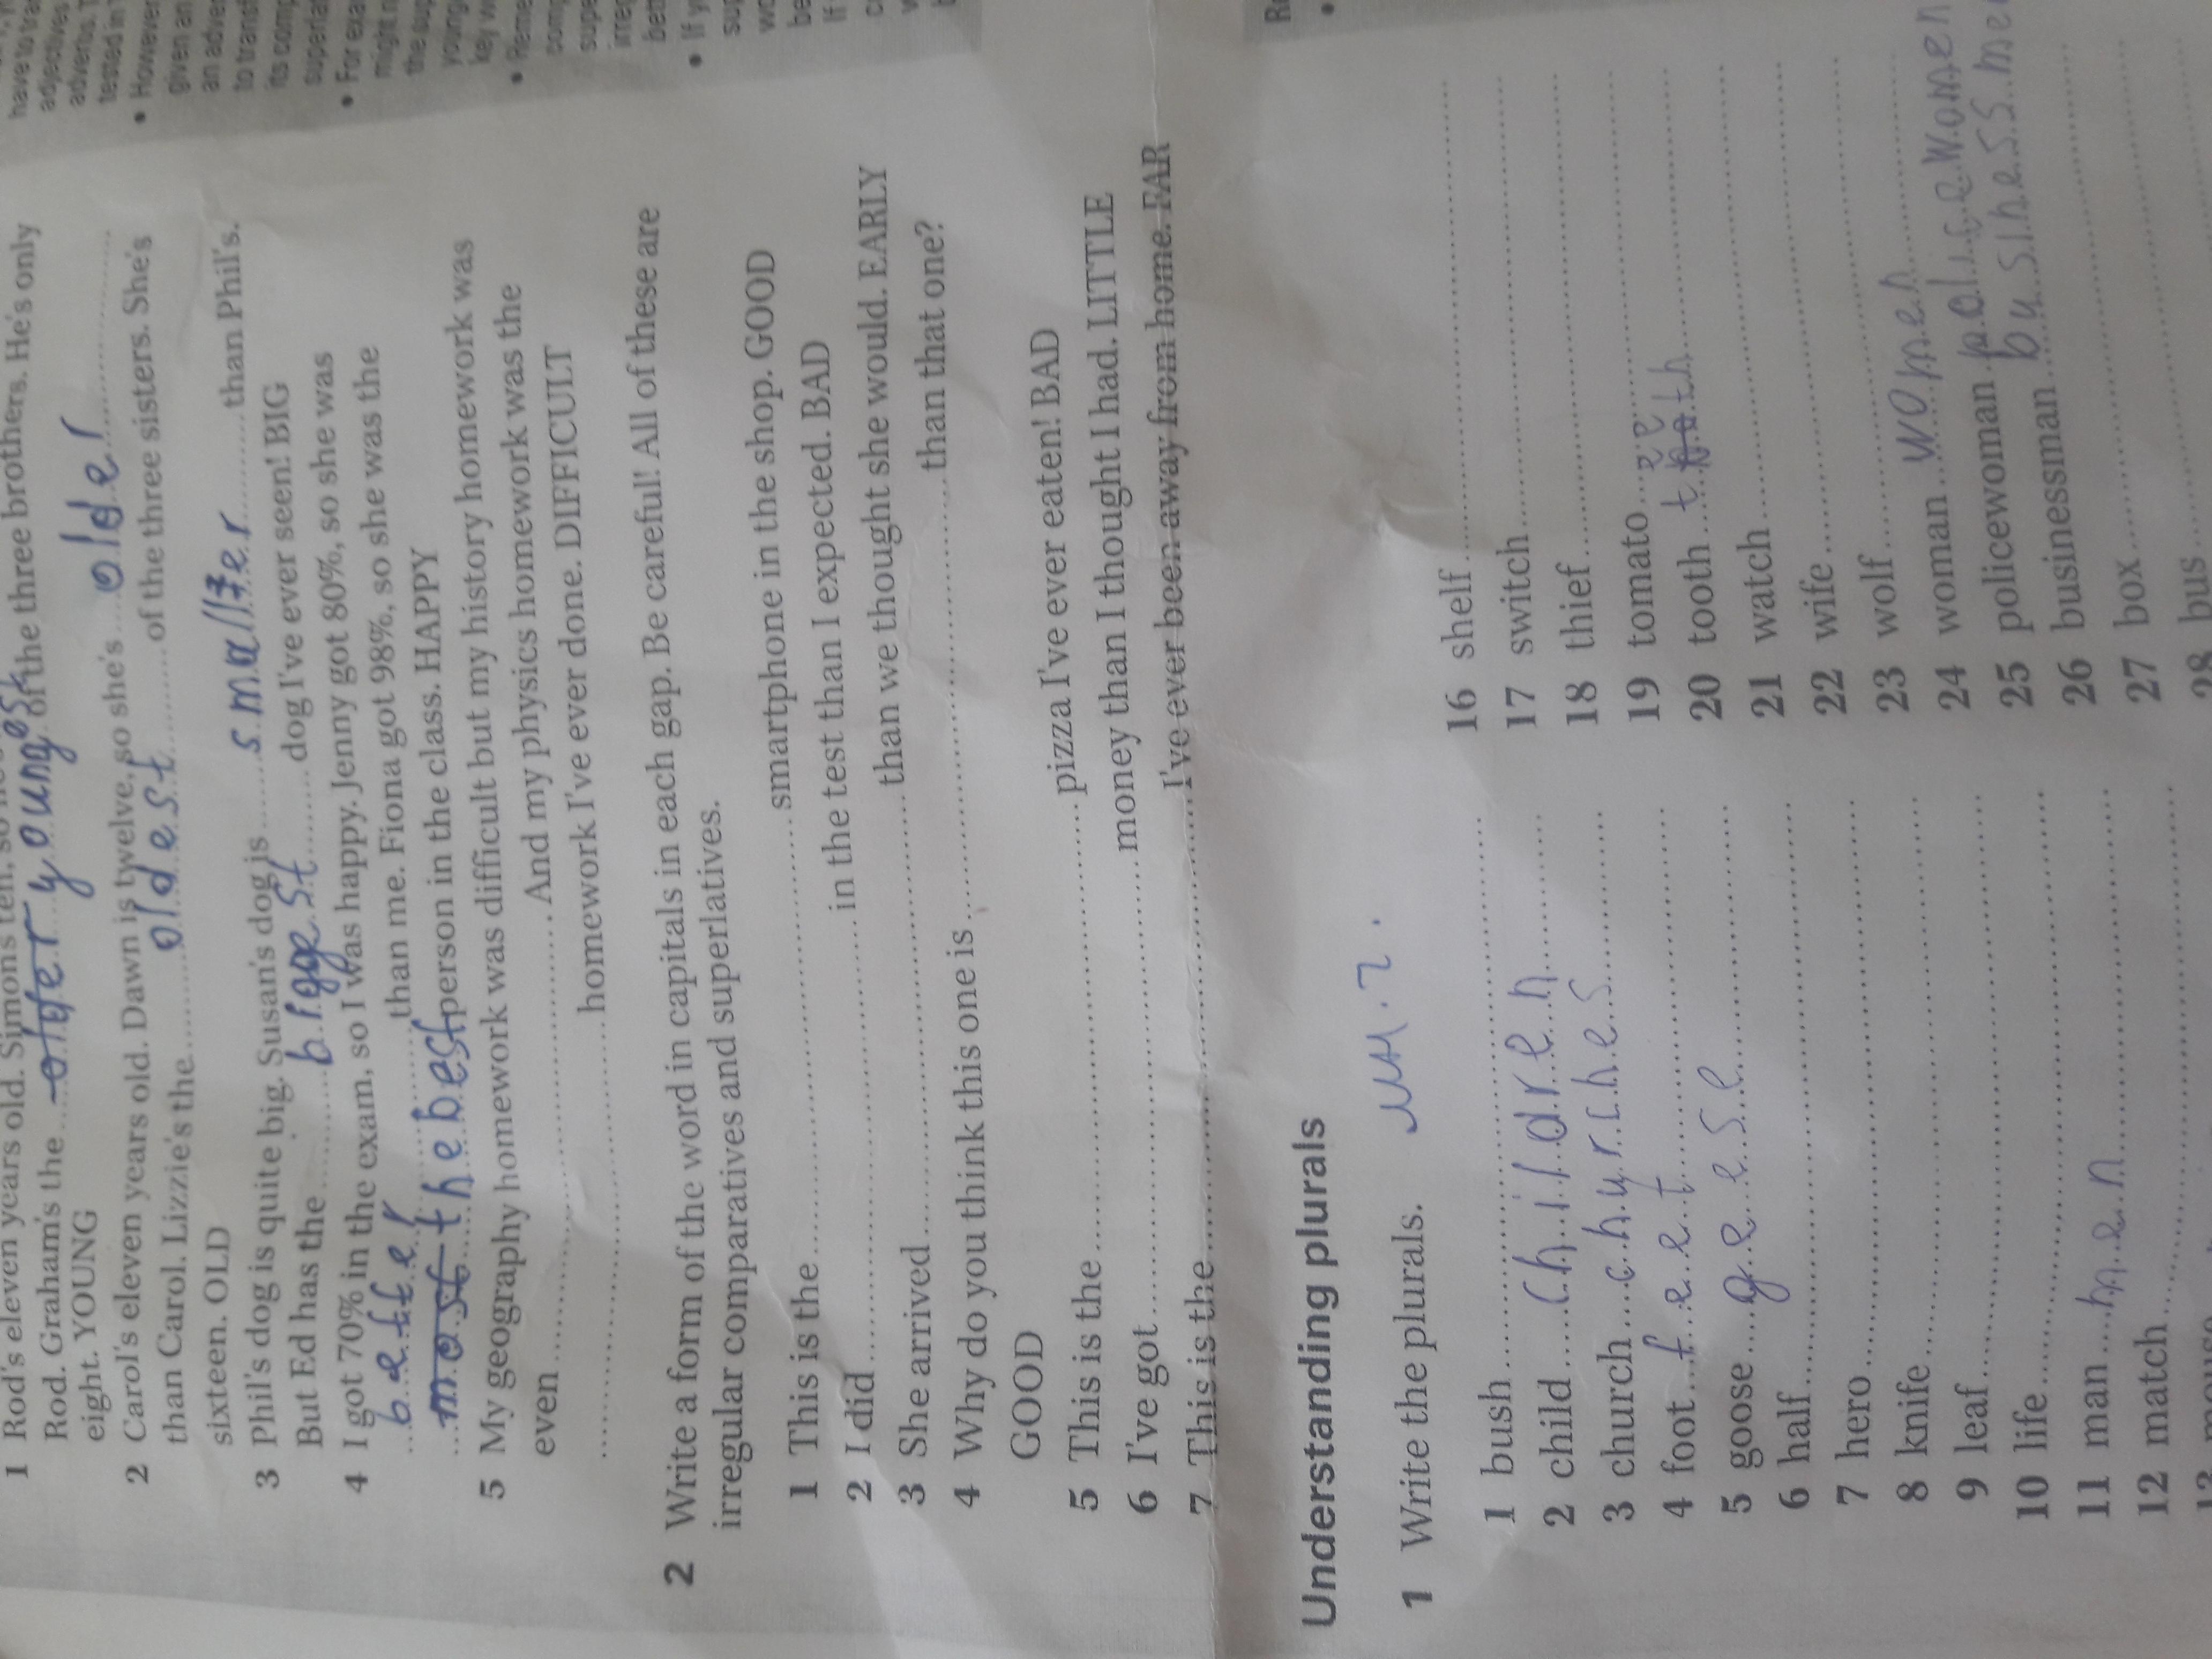 have to tra
adjectives
adverbs. T
tested in
• However
given an
an adver
to transf
its comp
superlat
• For exa
might n
the sup
young
key w
• Reme
com
supe
irreg
bett
• If y
sup
wo
be
If
c
1 Rod's eleven years old. Simon's ten, so
Rod. Graham's the older youngest of the three brothers. He's only
eight. YOUNG
2 Carol's eleven years old. Dawn is twelve, so she's older
than Carol. Lizzie's the oldest of the three sisters. She's
sixteen. OLD
3 Phil's dog is quite big. Susan's dog is smaller than Phil's.
But Ed has the biggest dog I've ever seen! BIG
4 I got 70% in the exam, so I was happy. Jenny got 80%, so she was
better than me. Fiona got 98%, so she was the
most the best person in the class. HAPPY
5 My geography homework was difficult but my history homework was
even And my physics homework was the
homework I've ever done. DIFFICULT
2 Write a form of the word in capitals in each gap. Be careful! All of these are
irregular comparatives and superlatives.
1 This is the smartphone in the shop. GOOD
2 I did in the test than I expected. BAD
3 She arrived than we thought she would. EARLY
4 Why do you think this one is than that one?
GOOD
5 This is the pizza I've ever eaten! BAD
6 I've got money than I thought I had. LITTLE
7 This is the I've ever been away from home. FAR
Understanding plurals
1 Write the plurals.
1 bush
2 child children
3 church churches
4 foot feet
5 goose geese
6 half
7 hero
8 knife
9 leaf
10 life
11 man men
12 match
13
16 shelf
17 switch
18 thief
19 tomato
20 tooth teeth
21 watch
22 wife
23 wolf
24 woman women
25 policewoman policewomen
26 businessman businessmen
27 box
28 bus